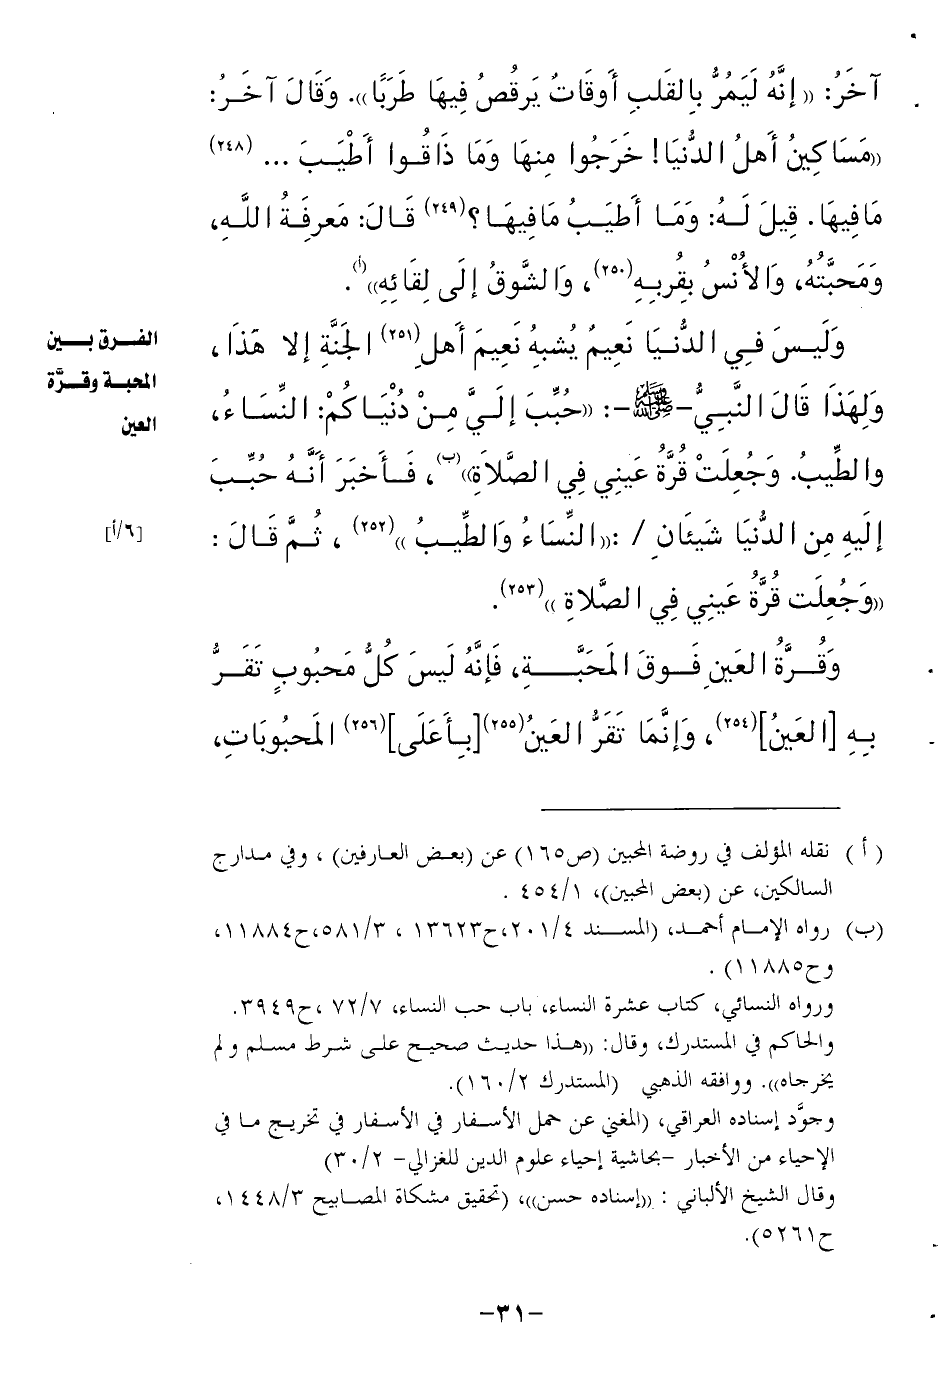 آخَرُ: «إنَّهُ لَيَمُرُّ بالقَلبِ أوقَاتُ يَرقُصُ فِيهَا طَرَبًا». وَقَالَ آخَـرُ:
«مَسَاكِينُ أهلُ الدُّنيَا! خَرَجُوا مِنهَا وَمَا ذَاقُـوا أطْيَـبَ ... (٢٤٨)
مَا فِيهَا. قِيلَ لَـهُ: وَمَـا أطيَـبُ مَا فِيهَـا؟(٢٤٩) قَـالَ: مَعرِفَـةُ اللهِ،
وَمَحَبَّتُهُ، وَالأُنْسُ بِقُربِـهِ(٢٥٠)، وَالشَّوقُ إلَى لِقَائِهِ»(أ).
وَلَيـسَ فِـي الدُّنـيَا نَعِيمُ يُشبِهُ نَعِيمَ أهلِ(٢٥١) الجَنَّةِ إلا هَذَا،
الفـرق بـــين
المحبـة وقـرَّة
العين
وَلِهَذَا قَالَ النَّبِيُّ-ﷺ-: «حُبِّبَ إلَيَّ مِـنْ دُنْيَـاكُمْ: النِّسَـاءُ،
والطِّيبُ. وَجُعِلَتْ قُرَّةُ عَينِي فِي الصَّلَاةِ»(ب)، فَـأخبَرَ أنَّـهُ حُبِّـبَ
إلَيهِ مِن الدُّنيَا شَيئَانِ / :«النِّسَاءُ وَالطِّيبُ»(٢٥٢) ، ثُـمَّ قَـالَ :
[٦/أ]
«وَجُعِلَت قُرَّةُ عَينِي فِي الصَّلاةِ»(٢٥٣).
وَقُـرَّةُ العَينِ فَـوقَ المَحَبَّـــةِ، فَإنَّهُ لَيسَ كُلُّ مَحبُوبٍ تَقَـرُّ
بِـهِ [العَينُ](٢٥٤)، وَإنَّمَا تَقَرُّ العَينُ(٢٥٥)[بِـأعَلَى](٢٥٦) المَحبُوبَاتِ،
( أ ) نقله المؤلف في روضة المحبين (ص١٦٥) عن (بعـض العـارفين) ، وفي مـدارج
السالكين، عن (بعض المحبين)، ٤٥٤/١ .
(ب) رواه الإمـام أحمـد، (المســند ٢٠١/٤،ح١٣٦٢٣ ، ٥٨١/٣،ح١١٨٨٤،
وح١١٨٨٥) .
ورواه النسائي، كتاب عشرة النساء، باب حب النساء، ٧٢/٧ ،ح٣٩٤٩.
والحاكم في المستدرك، وقال: «هـذا حديـث صحيـح علـى شـرط مسـلم و لم
يخرجاه». ووافقه الذهبي (المستدرك ١٦٠/٢).
وجوَّد إسناده العراقي، (المغني عن حمل الأسـفار في الأسـفار في تخريـج مـا في
الإحياء من الأخبار -بحاشية إحياء علوم الدين للغزالي- ٣٠/٢)
وقال الشيخ الألباني : «إسناده حسن»، (تحقيق مشكاة المصـابيح ١٤٤٨/٣،
ح٥٢٦١).
-٣١-